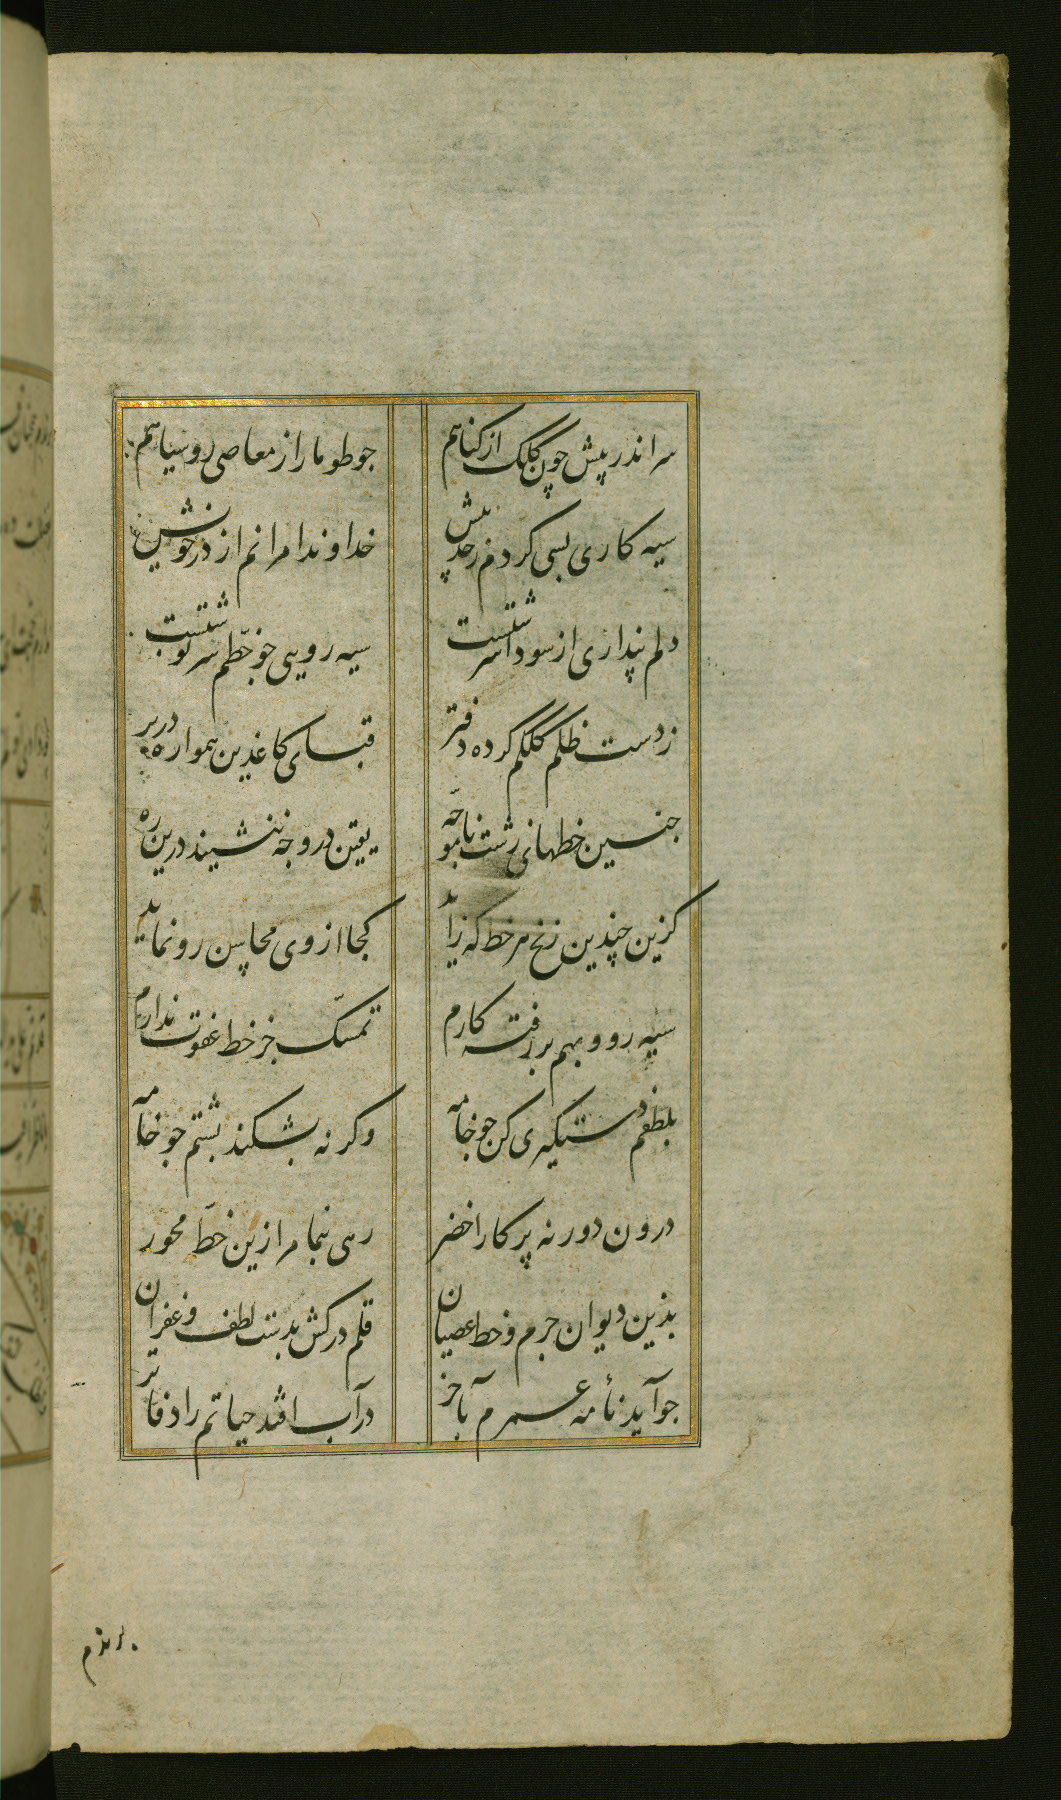 سر اندر پیش چون کلک از کناهم
جو طومار از معاصی رو سیاهم
سیه کاری بسی کردم زحد پیش
خداوندا مرانم از در خویش
دلم پنداری از سودا سرشتست
سیه رویی جو خطم سر نوشتست
ز دست ظلم کلکم کرده دفتر
قبای کاغذین همواره در بر
جنین خطهای زشت نا موجه
یقین در وجه ننشیند درین ره
کزین چندین زنخ هر خط که زاید
کجا از وی محاسن رو نماید
سیه رو و بهم بر رفته کارم
تمسک جز خط عفوت ندارم
بلطفم دستکیری کن جو خامه
و کرنه بشکند پشتم جو خامه
درون دور نه پرکار اخضر
رهی بنما مرا زین خط محور
بذین دیوان جرم و خط عصیان
قلم درکش بدست لطف و غفران
جو آید نامه عمرم بآخر
در آب افتد حیاتم را دفاتر